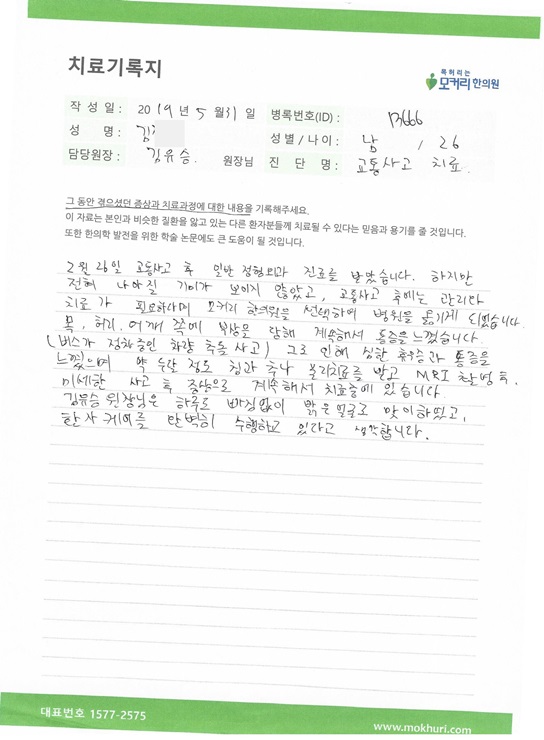 치료기록지
목허리는
모커리한의원
작 성 일 : 2019 년 5 월 31 일 병록번호(ID) : 13666
성 명 : 김 성별 / 나이 : 남 / 26
담당원장 : 김유승. 원장님 진 단 명 : 교통사고 치료.
그 동안 겪으셨던 증상과 치료과정에 대한 내용을 기록해주세요.
이 자료는 본인과 비슷한 질환을 앓고 있는 다른 환자분들께 치료될 수 있다는 믿음과 용기를 줄 것입니다.
또한 한의학 발전을 위한 학술 논문에도 큰 도움이 될 것입니다.
2월 26일 교통사고 후 일반 정형외과 진료를 받았습니다. 하지만
전혀 나아질 기미가 보이지 않았고, 교통사고 후에는 관리와
치료가 필요하다며 모커리 한의원을 선택하여 병원을 옮기게 되었습니다.
목, 허리, 어깨 쪽에 부상을 당해 계속해서 통증을 느꼈습니다.
(버스가 정차중인 차량 추돌 사고) 그로 인해 심한 후유증과 통증을
느꼈으며 약 두달 정도 침과 추나 물리치료를 받고 MRI 촬영 후,
미세한 사고 후 증상으로 계속해서 치료중에 있습니다.
김유승 원장님은 하루도 빠짐없이 밝은 얼굴로 맞이하였고,
환자 케어를 완벽히 수행하고 있다고 생각합니다.
대표번호 1577-2575
www.mokhuri.com